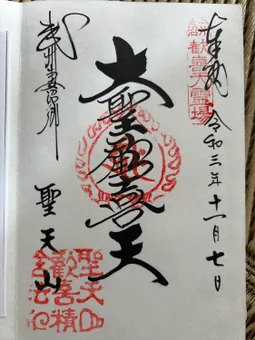 奉拝 令和三年十一月七日
歓喜天霊場
大聖歓喜天
武州妻沼郷
聖天山
聖天山
歓喜院